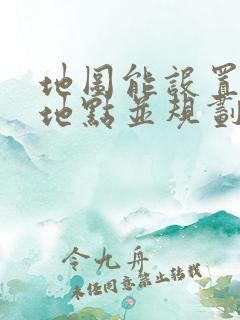 地图能設置
地點並規劃
令九舟
未經同意禁止轉載